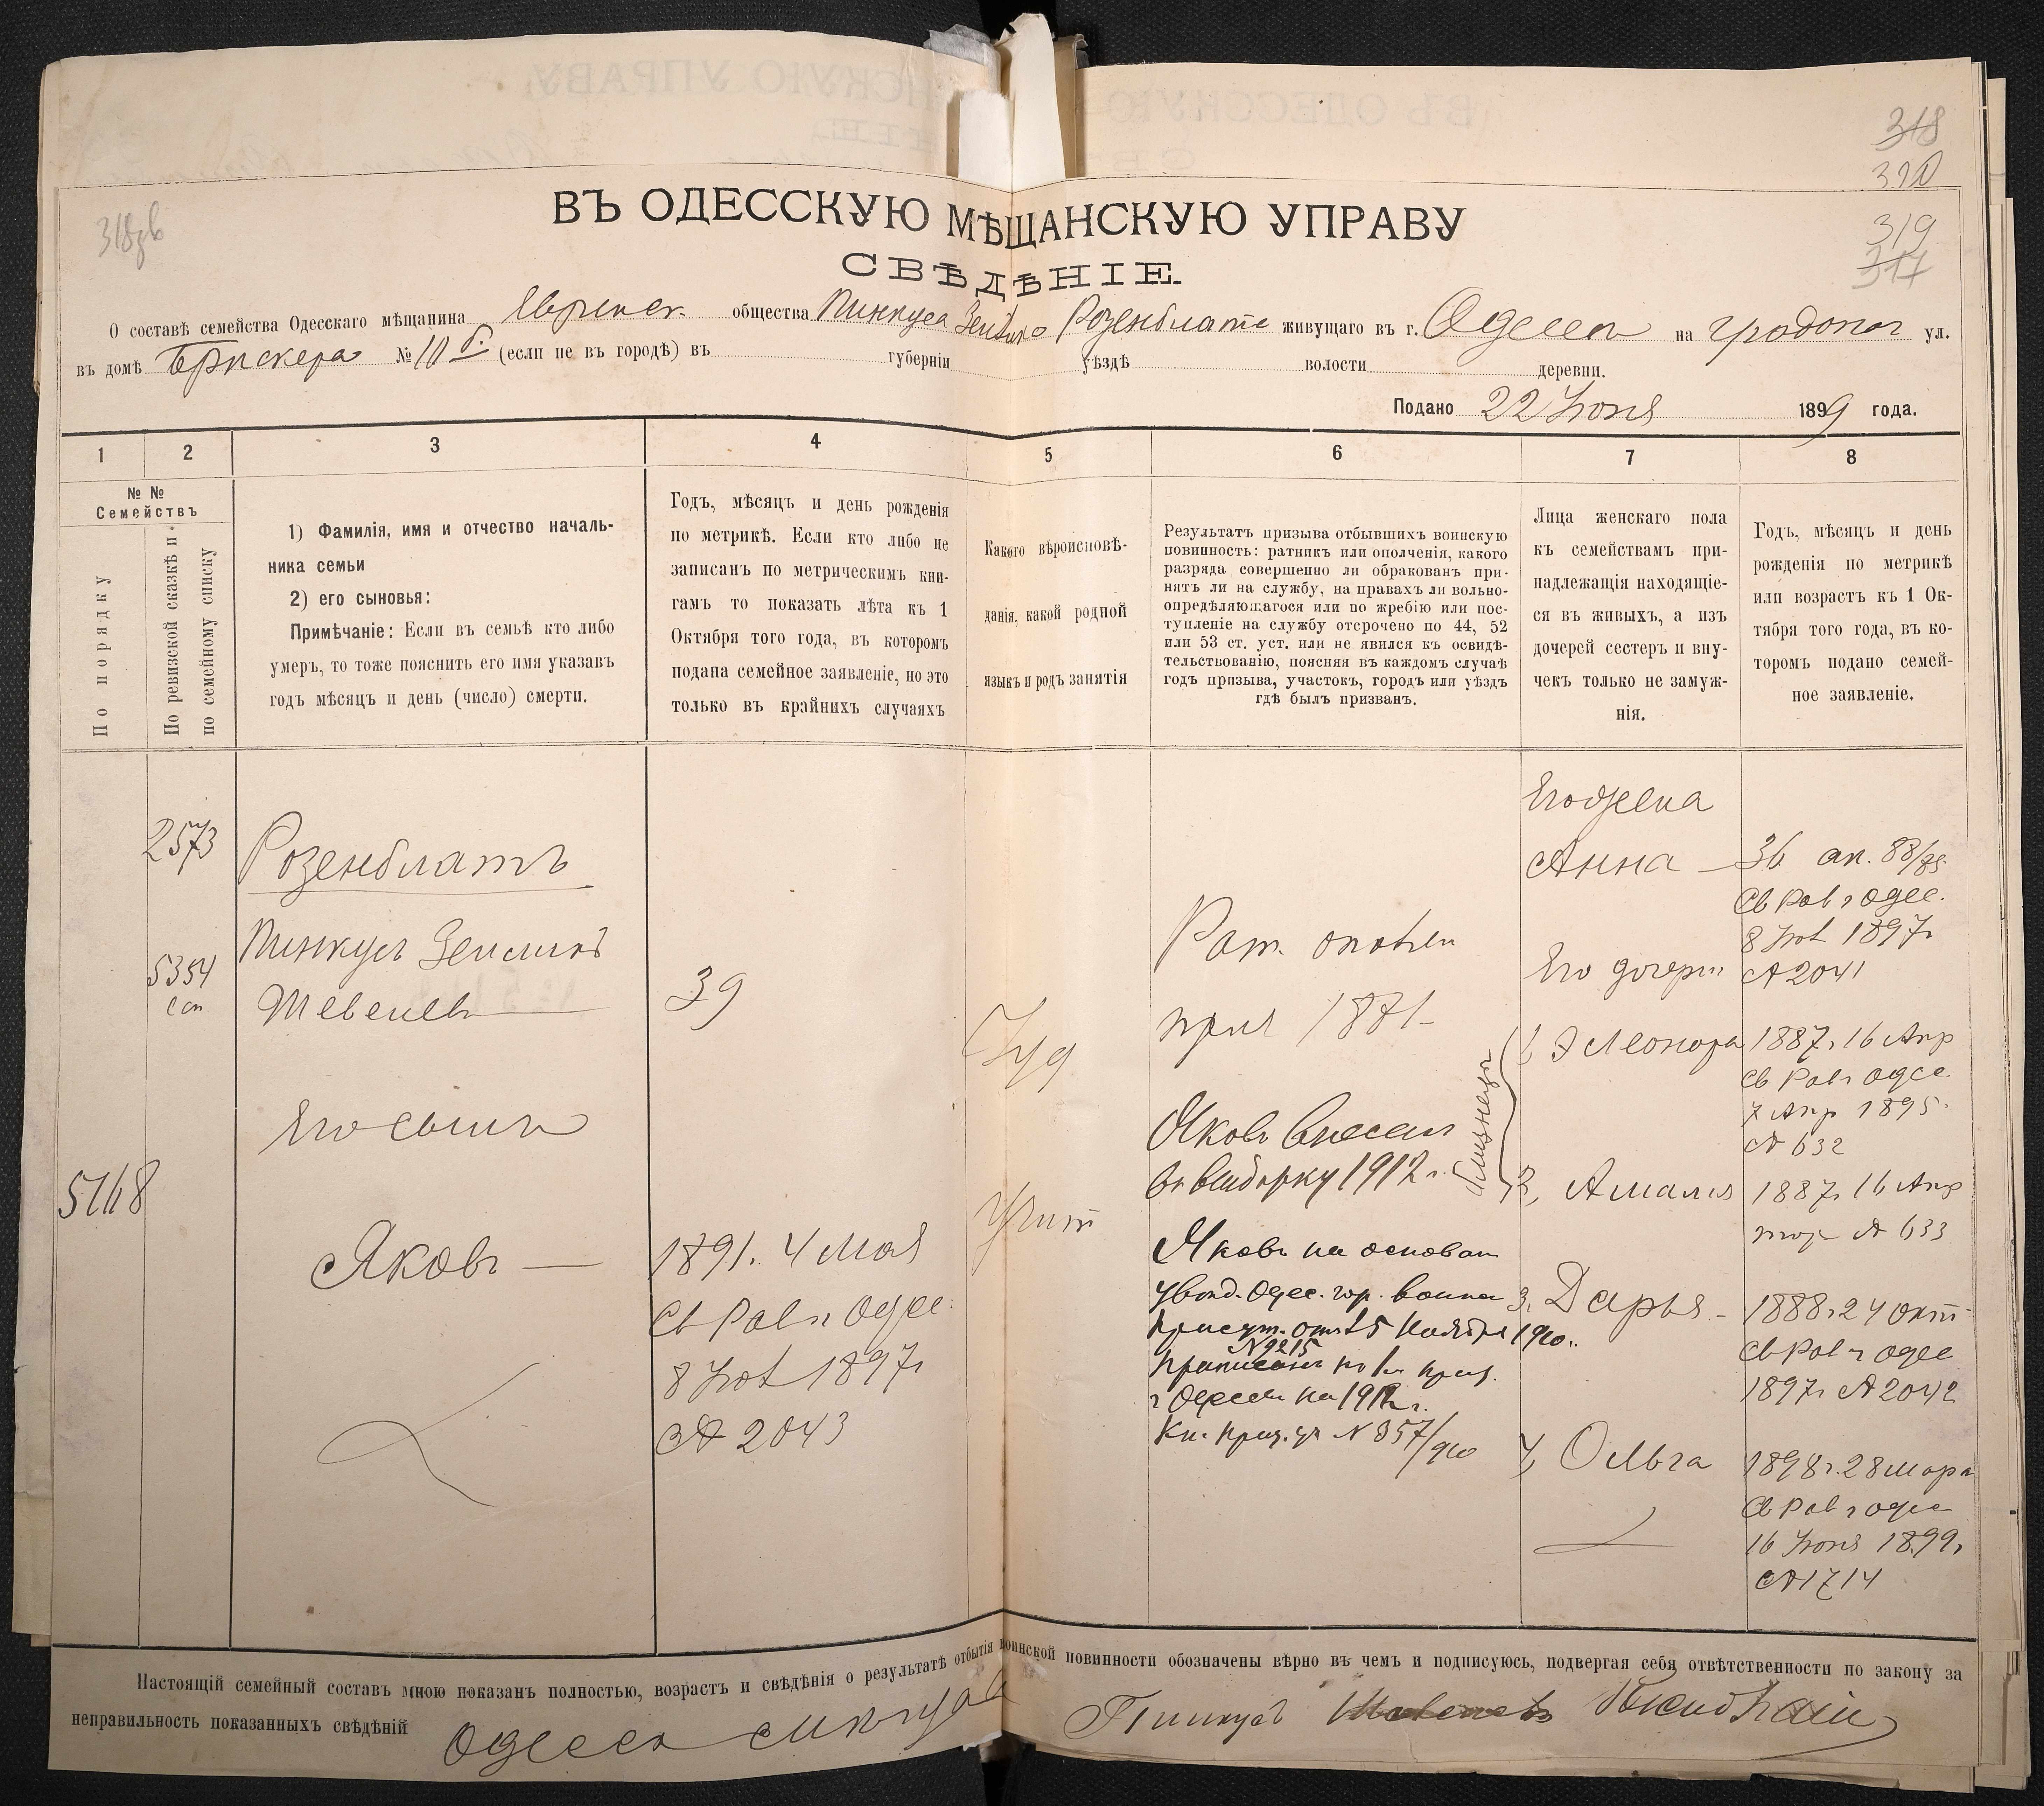 318
320
318 зв
319
317
ВЪ ОДЕССКУЮ МѢЩАНСКУЮ УПРАВУ
СВѢДѢНІЕ.
О составѣ семейства Одесскаго мѣщанина Еврейск общества Пинкуса Розенблатъ живущаго въ г. Одессы на ул.
въ домѣ Брискера № 10 (если не въ городѣ) въ губерніи уѣздѣ волости деревни.
Подано 22 Іюня 1899 года.
1 2 3 4 5 6 7 8
№ №
Семействъ
По порядку
По ревизской сказкѣ и
по семейному списку
1) Фамилія, имя и отчество началь-
ника семьи
2) его сыновья:
Примѣчаніе: Если въ семьѣ кто либо
умеръ, то тоже пояснить его имя указавъ
годъ мѣсяцъ и день (число) смерти.
Годъ, мѣсяцъ и день рожденія
по метрикѣ. Если кто либо не
записанъ по метрическимъ кни-
гамъ то показать лѣта къ 1
Октября того года, въ которомъ
подана семейное заявленіе, но это
только въ крайнихъ случаяхъ
Какого вѣроисповѣ-
данія, какой родной
языкъ и родъ занятія
Результатъ призыва отбывшихъ воинскую
повинность: ратникъ или ополченія, какого
разряда совершенно ли обракованъ при-
нятъ ли на службу, на правахъ ли вольно-
опредѣляющагося или по жребію или пос-
тупленіе на службу отсрочено по 44, 52
или 53 ст. уст. или не явился къ освидѣ-
тельствованію, поясняя въ каждомъ случаѣ
годъ призыва, участокъ, городъ или уѣздъ
гдѣ былъ призванъ.
Лица женскаго пола
къ семействамъ при-
надлежащія находящіе-
ся въ живыхъ, а изъ
дочерей сестеръ и вну-
чекъ только не замуж-
нія.
Годъ, мѣсяцъ и день
рожденія по метрикѣ
или возрастъ къ 1 Ок-
тября того года, въ ко-
торомъ подано семей-
ное заявленіе.
2573
Розенблатъ
5354
сп
Пинкусъ
Шевелевъ
39
Іуд
Рат. ополчен
приз 1881
Его жена
Анна — 36 ап. 88/89
Св Рав г Одес.
8 Іюл 1897г
№ 2041
Его дочери
1, Элеонора 1887г. 16 Апр
Св Рав г Одес
7 Апр 1895
№ 632
близнецы
2, Амалія 1887г. 16 Апр
тож № 633
3, Дарья - 1888г 24 окт
Св Рав г Одес
1897г № 2042
4, Ольга 1898г. 28 март
Св Рав г Одес
16 Іюня 1899г
№ 1714
Его сынъ
5168
Яковъ —
1891г. 4 Мая
Св Рав г Одес.
8 Іюл 1897г
№ 2043
Яковъ внесен
въ выборку 1912 г.
Яковъ на основан
увѣд. Одес. гор. воинск
присут. отъ 15 Ноября 1910г.
№ 9215
приписанъ по приз.
г Одессы на 1912 г.
Кн. приз. уч № 357/910
Настоящій семейный составъ мною показанъ полностью, возрастъ и свѣдѣнія о результатѣ отбытія воинской повинности обозначены вѣрно въ чемъ и подписуюсь, подвергая себя отвѣтственности по закону за
неправильность показанныхъ свѣдѣній Одесск Пинкусъ